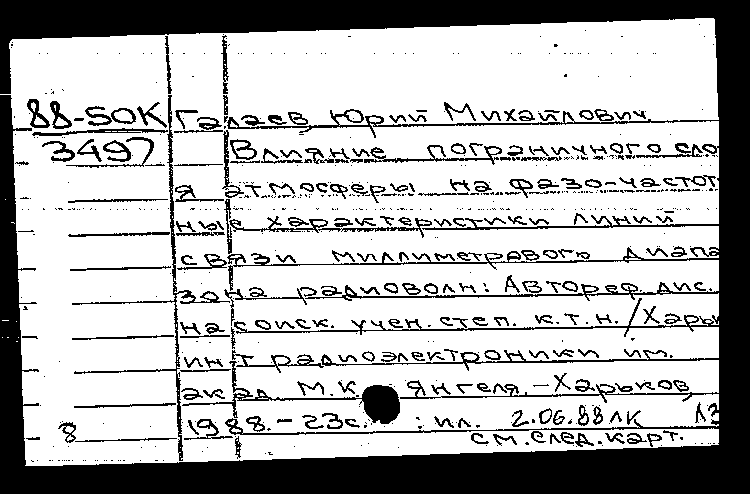 88-50К Галаев, Юрий Михайлович.
3497 Влияние пограничного сло
я атмосферы на фазо-частот
ные характеристики линий
связи миллиметрового диапа
зона радиоволн: Автореф. дис.
на соиск. учен. степ. к.т.н. / Харьк
ин-т радиоэлектроники им.
акад. М.К. Янгеля. - Харьков,
1988. - 23с. : ил. 2.06.88 ЛК
8 см. след. карт.